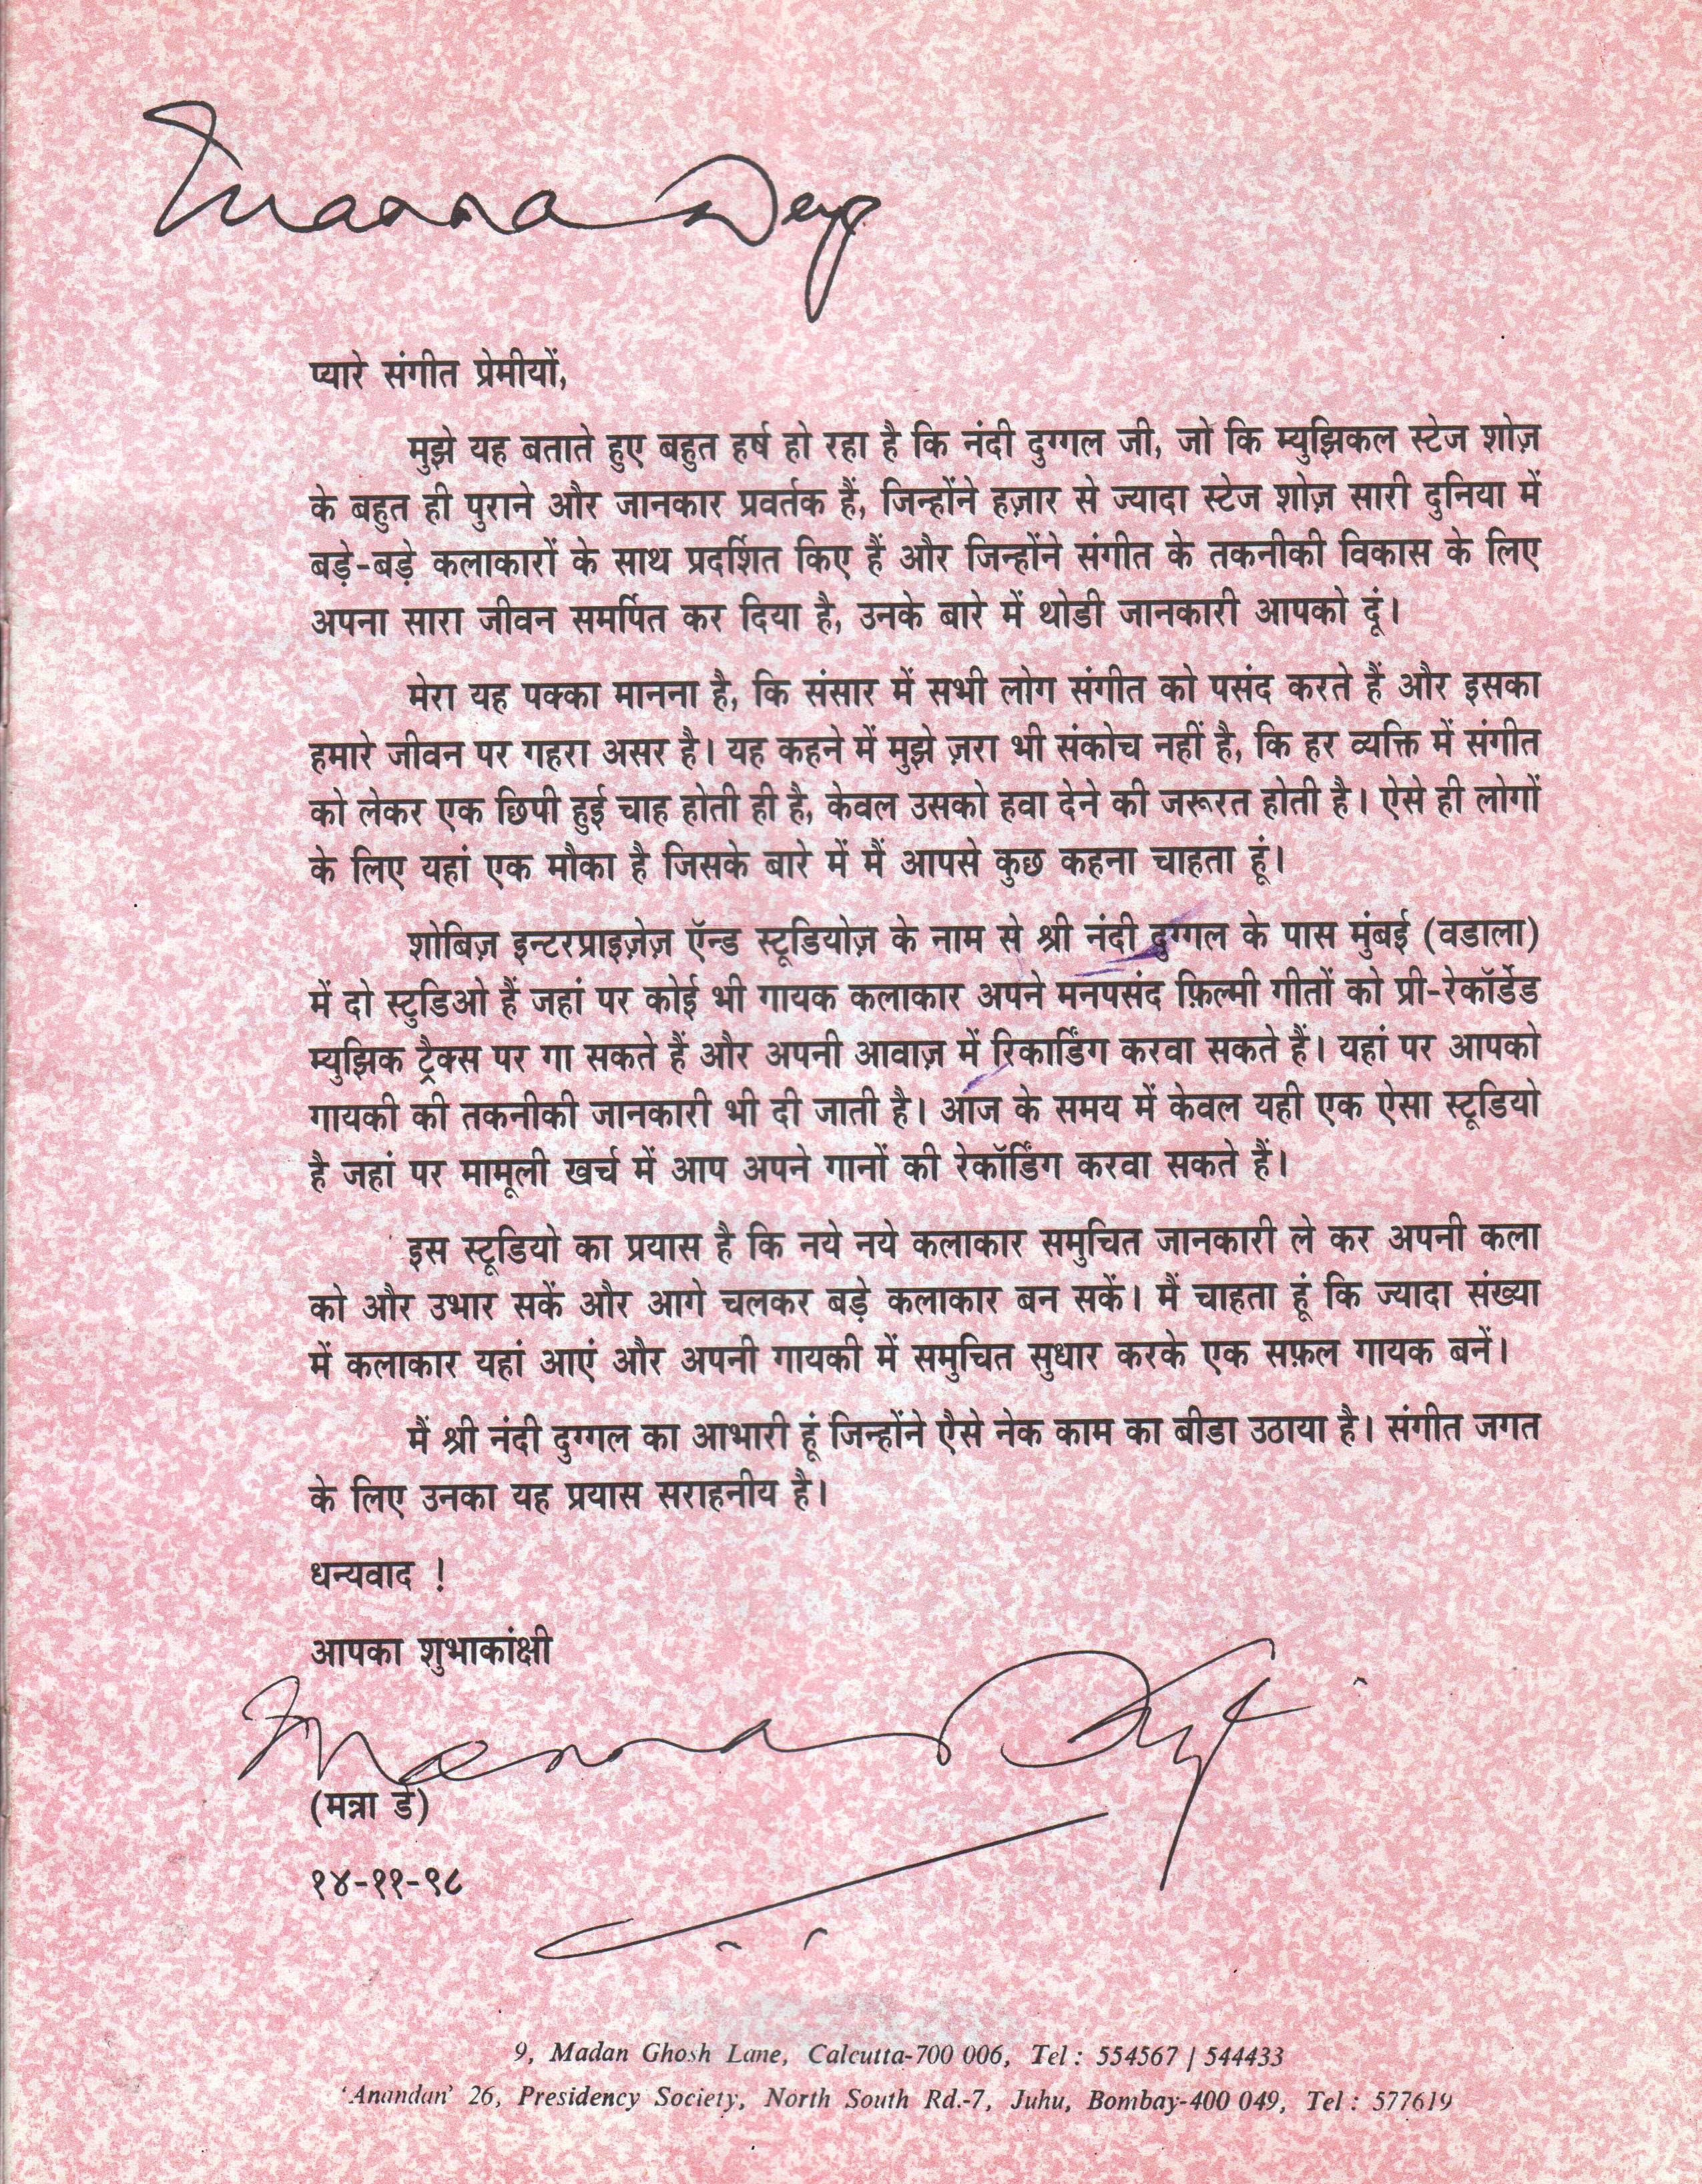 Manna Dey
प्यारे संगीत प्रेमीयों,
मुझे यह बताते हुए बहुत हर्ष हो रहा है कि नंदी दुग्गल जी, जो कि म्युझिकल स्टेज शोज़
के बहुत ही पुराने और जानकार प्रवर्तक हैं, जिन्होंने हज़ार से ज्यादा स्टेज शोज़ सारी दुनिया में
बड़े-बड़े कलाकारों के साथ प्रदर्शित किए हैं और जिन्होंने संगीत के तकनीकी विकास के लिए
अपना सारा जीवन समर्पित कर दिया है, उनके बारे में थोडी जानकारी आपको दूं।
मेरा यह पक्का मानना है, कि संसार में सभी लोग संगीत को पसंद करते हैं और इसका
हमारे जीवन पर गहरा असर है। यह कहने में मुझे ज़रा भी संकोच नहीं है, कि हर व्यक्ति में संगीत
को लेकर एक छिपी हुई चाह होती ही है, केवल उसको हवा देने की जरूरत होती है। ऐसे ही लोगों
के लिए यहां एक मौका है जिसके बारे में मैं आपसे कुछ कहना चाहता हूं।
शोबिज़ इन्टरप्राइज़ेज़ ऍन्ड स्टूडियोज़ के नाम से श्री नंदी दुग्गल के पास मुंबई (वडाला)
में दो स्टुडिओ हैं जहां पर कोई भी गायक कलाकार अपने मनपसंद फ़िल्मी गीतों को प्री-रेकॉर्डेड
म्युझिक ट्रैक्स पर गा सकते हैं और अपनी आवाज़ में रिकार्डिंग करवा सकते हैं। यहां पर आपको
गायकी की तकनीकी जानकारी भी दी जाती है। आज के समय में केवल यही एक ऐसा स्टूडियो
है जहां पर मामूली खर्च में आप अपने गानों की रेकॉर्डिंग करवा सकते हैं।
इस स्टूडियो का प्रयास है कि नये नये कलाकार समुचित जानकारी ले कर अपनी कला
को और उभार सकें और आगे चलकर बड़े कलाकार बन सकें। मैं चाहता हूं कि ज्यादा संख्या
में कलाकार यहां आएं और अपनी गायकी में समुचित सुधार करके एक सफ़ल गायक बनें।
मैं श्री नंदी दुग्गल का आभारी हूं जिन्होंने एैसे नेक काम का बीडा उठाया है। संगीत जगत
के लिए उनका यह प्रयास सराहनीय है।
धन्यवाद !
आपका शुभाकांक्षी
Manna Dey
(मन्ना डे)
१४-११-९८
9, Madan Ghosh Lane, Calcutta-700 006, Tel : 554567 / 544433
'Anandan' 26, Presidency Society, North South Rd.-7, Juhu, Bombay-400 049, Tel : 577619